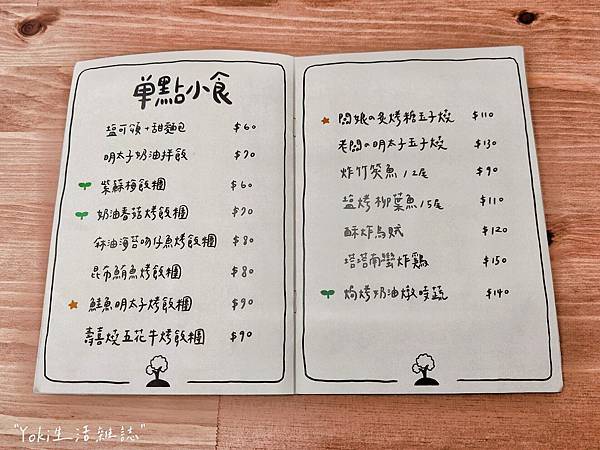 單點小食
塩可頌+甜麵包 $60
明太子奶油拌飯 $70
紫蘇梅飯糰 $60
奶油香菇烤飯糰 $70
麻油海苔吻仔魚烤飯糰 $80
昆布鮪魚烤飯糰 $80
鮭魚明太子烤飯糰 $90
壽喜燒五花牛烤飯糰 $90
闆娘の炙烤糖玉子燒 $110
老闆の明太玉子燒 $130
炸竹筴魚/2尾 $90
塩烤柳葉魚/5尾 $110
酥炸烏賊 $120
塔塔南蠻炸鷄 $150
焗烤奶油燉時蔬 $140
"Yoki生活雜誌"